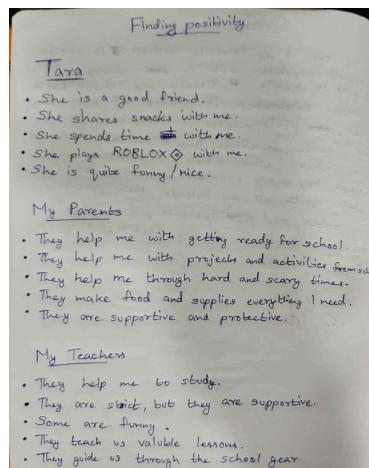 Finding positivity
Tara
• She is a good friend.
• She shares snacks with me.
• She spends time with me.
• She plays ROBLOX with me.
• She is quite funny/nice.
My Parents
• They help me with getting ready for school.
• They help me with projects and activities from sch
• They help me through hard and scary times.
• They make food and supplies everything I need.
• They are supportive and protective.
My Teachers
• They help me to study.
• They are strict, but they are supportive.
• Some are funny.
• They teach us valuble lessons.
• They guide us through the school gear.